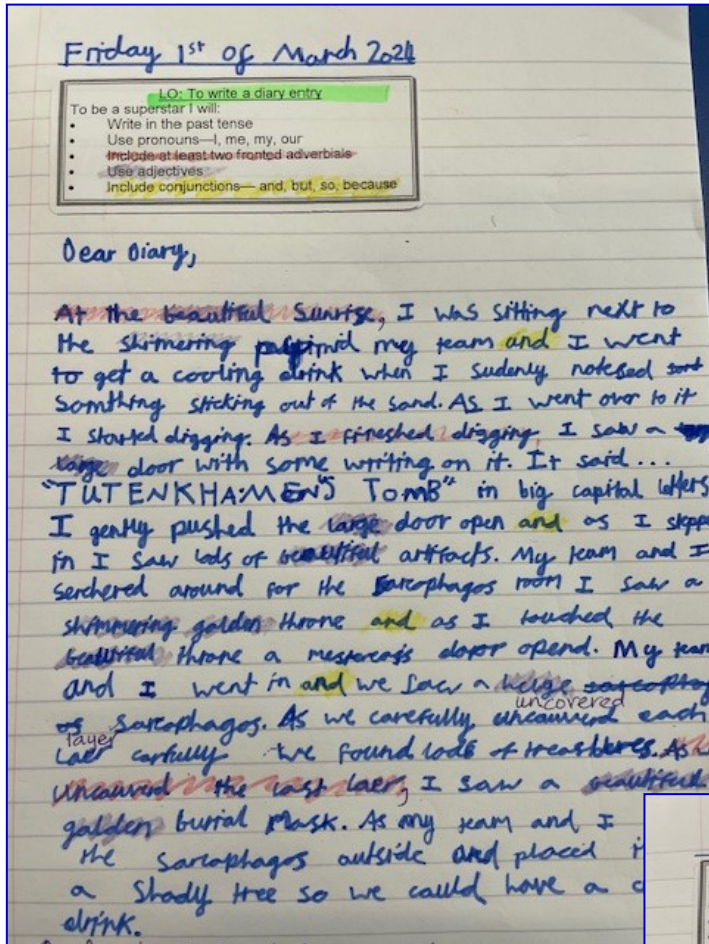 Friday 1st of March 2024
LO: To write a diary entry
To be a superstar I will:
• Write in the past tense
• Use pronouns—I, me, my, our
• Include at least two fronted adverbials
• Use adjectives
• Include conjunctions— and, but, so, because
Dear Diary,
At the beautiful Sunrise, I was sitting next to
the shimering my team and I went
to get a cooling drink when I sudenly notesed
Somthing sticking out of the sand. As I went over to it
I started digging. As I fineshed digging, I saw a
large door with some writing on it. It said...
"TUTENKHAMEN'S TOMB" in big capital letters
I gently pushed the large door open and as I stepp
in I saw lods of beautiful artifacts. My team and I
serchered around for the Sarcophagos room I saw a
shimmering golden throne and as I touched the
beautiful throne a door opend. My team
and I went in and we saw a huge
uncovered
Sarcophagos. As we carefully uncauverd each
layer
laer carfully we found lods of treasures. As
uncauverd the last laer, I saw a beautiful
golden burial Mask. As my team and I
the sarcophagos outside and placed
a Shady tree so we could have a c
drink.